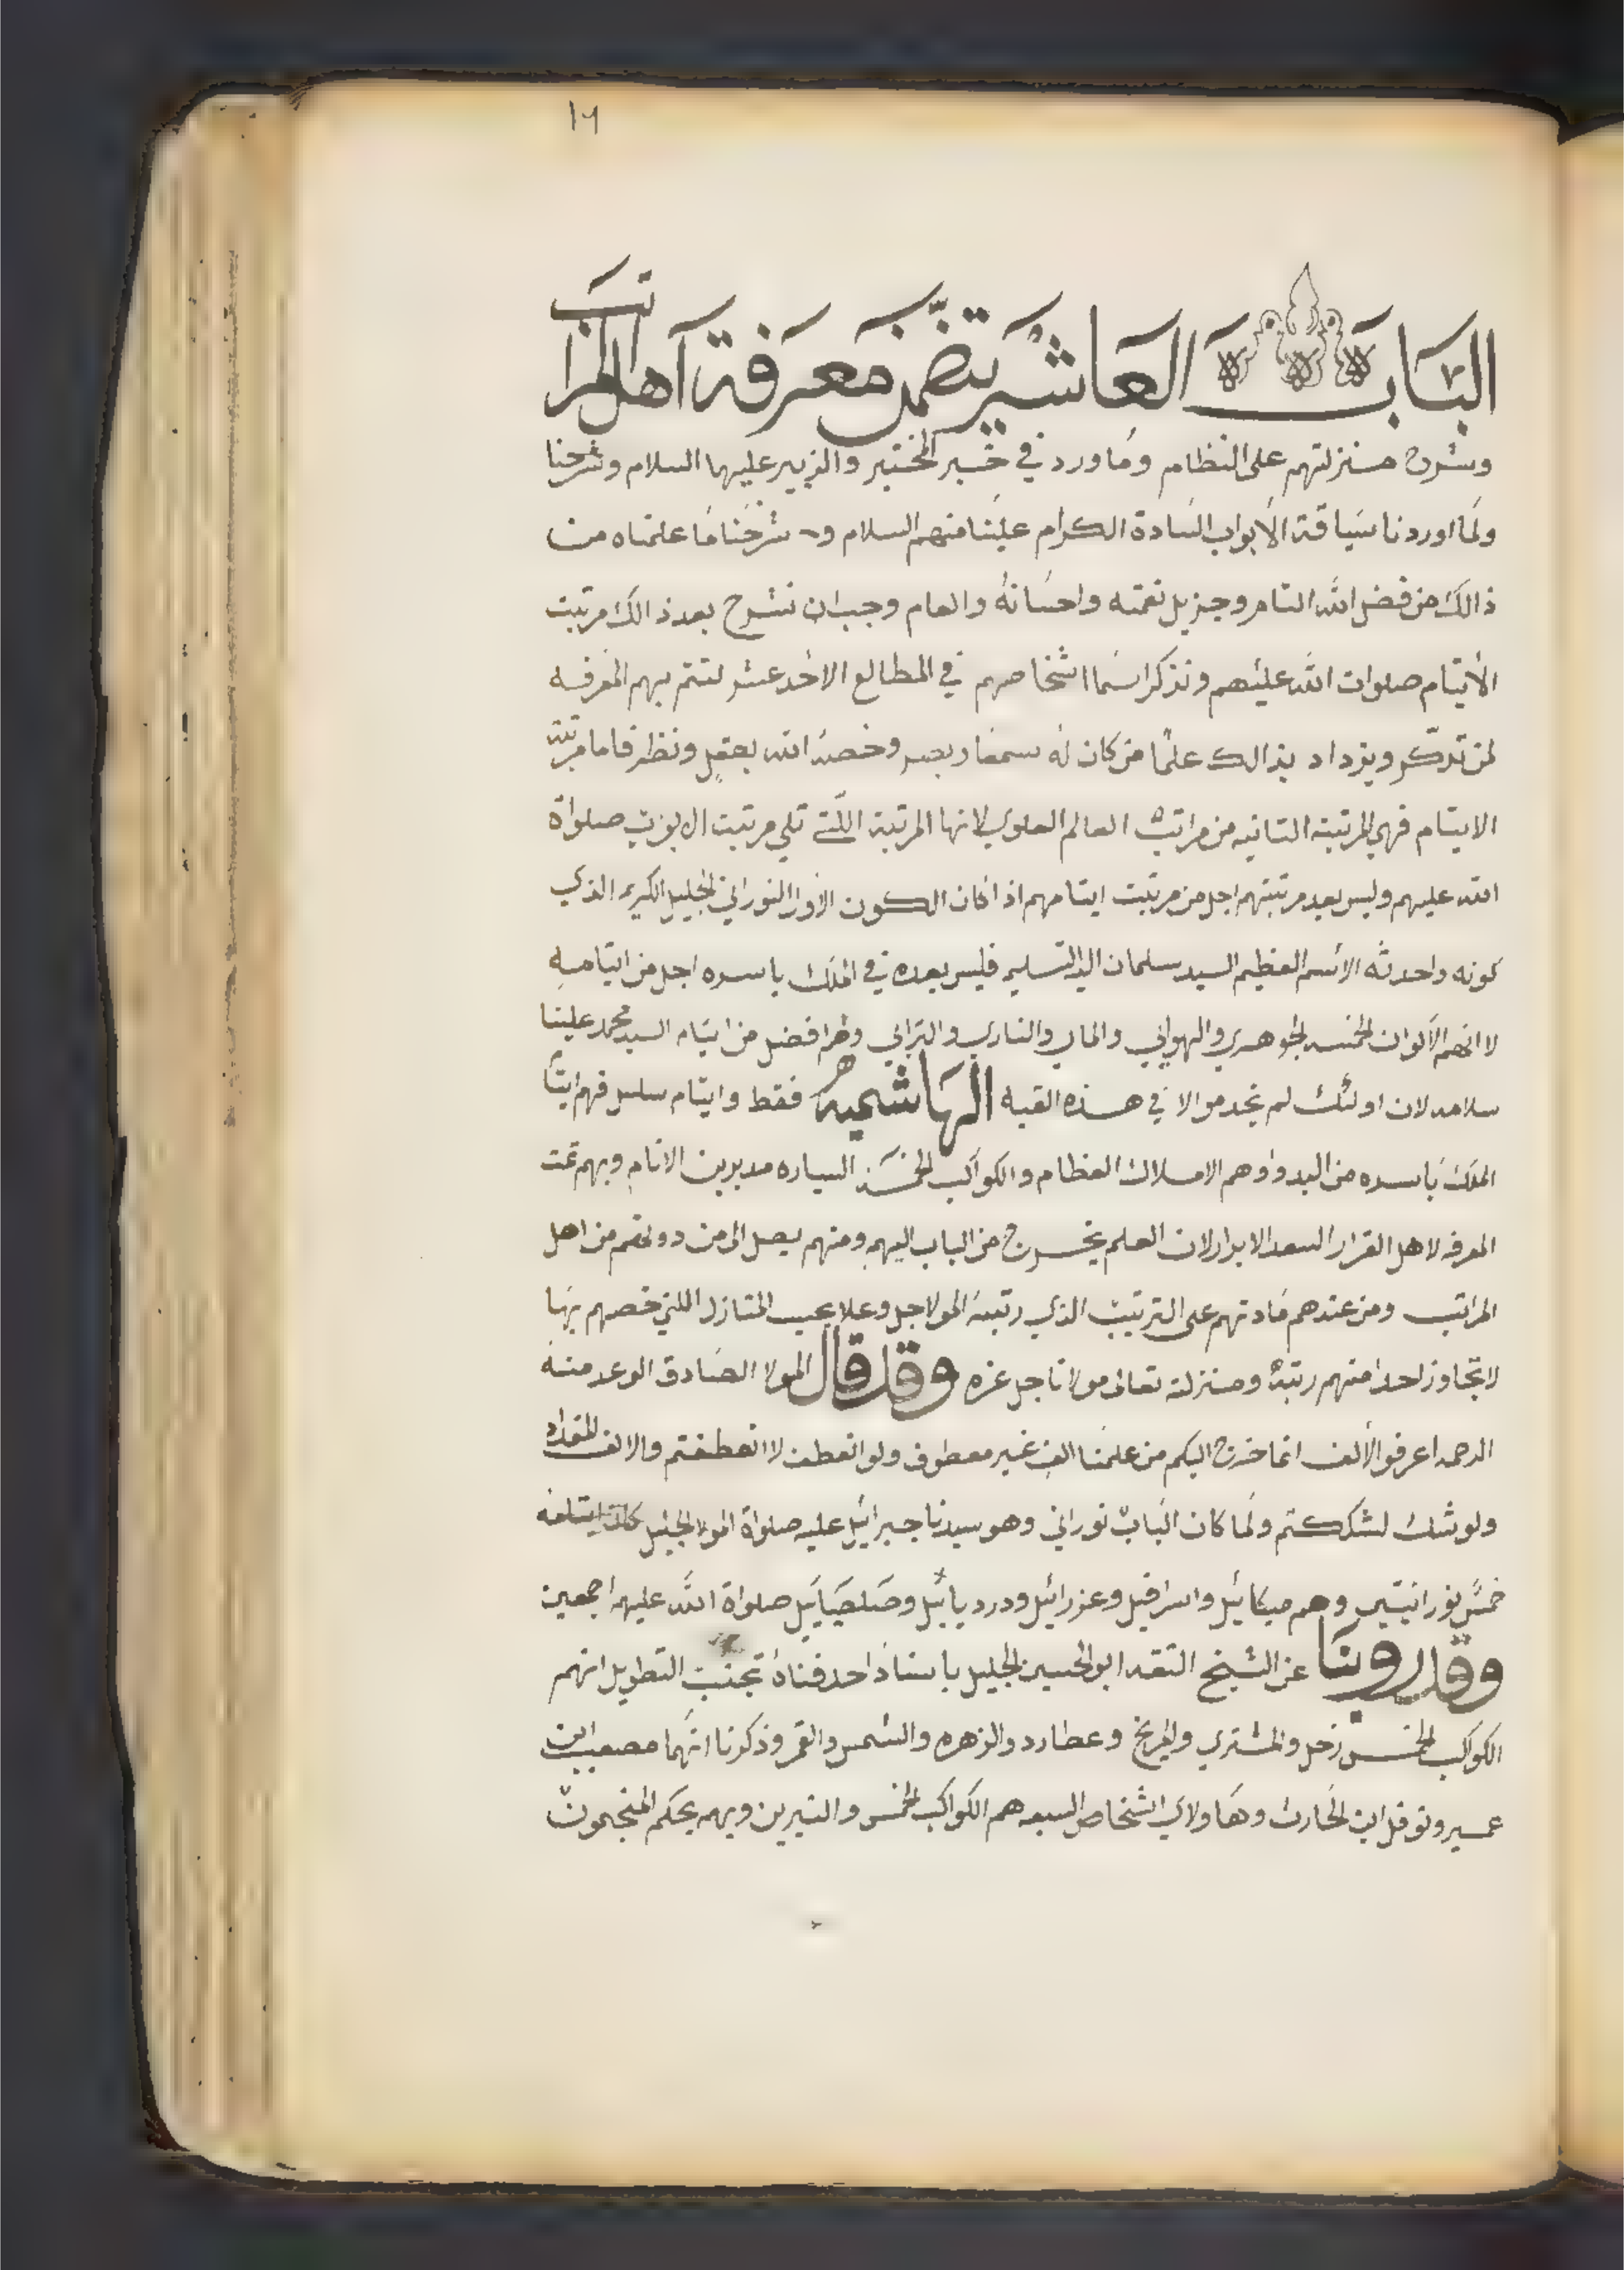 ١٦
الباب العاشر يتضمن معرفة أهل المراتب
وشرح منزلتهم على النظام وما ورد في خبر المختبر والزبير عليها السلام وشرحنا
ولما اوردنا سياقة الأبواب السادة الكرام علينا منهم السلام و شرحنا ما علمناه من
ذالك من فضل الله التام وجزيل نعمته واحسانه والعام وجب ان نشرح بعد ذالك مرتبت
الأيتام صلوات الله عليهم ونذكر اسما اشخاصهم في المطالع الاحد عشر لتتم بهم المعرفه
لمن تذكر ويزداد بذالك علما من كان له سمعا وبصر وخصه الله بعقل ونظر فاما مرتبة
الايتام فهي المرتبة الثانيه من مراتب العالم العلوي لانها المرتبة اللتي تلي مرتبت الابوب صلواة
الله عليهم وليس بعد مرتبتهم اجل من مرتبت ايتامهم اذا كان الكون الأول النوراني الجليل الكريم الذي
كونه واحدثه الاسم العظيم السيد سلمان اليه التسليم فليس بعده في الملك باسره اجل من ايتامه
لا انهم الألوان الخمسه الجوهري والهوائي والماي والناري والترابي وهم افضل من ايتام السيد محمد علينا
سلامه لان اولئك لم يخدموا الا في هذه القبه الهاشميه فقط وايتام سلسل فهم ايتام
الملك باسره من البدو وهم الاملاك العظام والكواكب الخمسة السياره مدبرين الانام وبهم تمت
المعرفه لاهل القرار السعد الابرار لان العلم يخرج من الباب اليهم ومنهم يصل الى من دونهم من اهل
المراتب ومن عندهم مادتهم على الترتيب الذي رتبه المولا جل وعلا بحيب المنازل اللتي خصهم بها
لا تجاوز احدا منهم رتبة ومنزلة تعالى مولانا جل عزه وقد قال المولا الصادق الوعد منه
الرحمه اعرفوا الألف انما خرج اليكم من علمنا الف غير معطوف ولو انعطف لا انعطفتم والالف المقداد
ولو شك لشككتم ولما كان الباب نوراني وهو سيدنا جبرائيل عليه صلواة المولا الجليل كانة ايتامه
خمس نورانيين وهم ميكائيل واسرافيل وعزرائيل ودرديائيل وصلصيائيل صلواة الله عليهم اجمعين
وقد روينا عن الشيخ الثقه ابو الحسين الجليل باسناذ احدفناه تجنب التطويل انهم
الكواكب الخمس زحل والمشتري والمريخ وعطارد والزهره والشمس والقمر وذكرنا انهما مصعب ابن
عمير ونوفل ابن الحارث وهاولاي الشخاص السبعه هم الكواكب الخمس والنيرين وبهم يحكم المنجمون